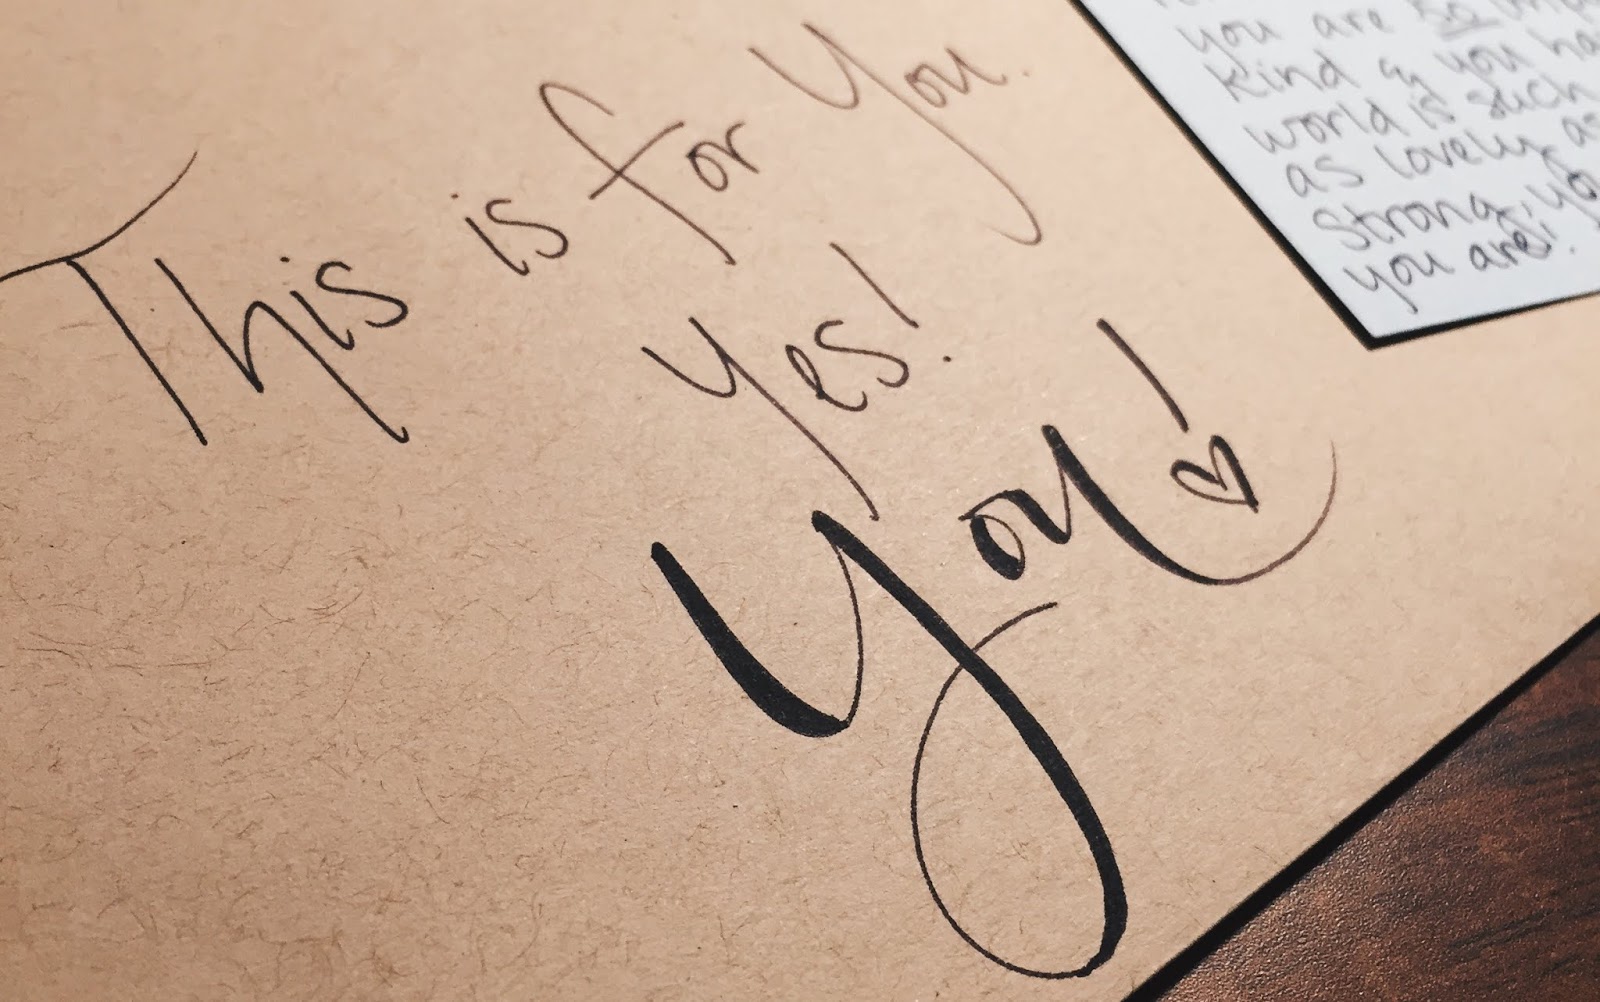 This is for You.
Yes!
You!
you are so
Kind
world is such
as lovely as
Strong, yo
you are!